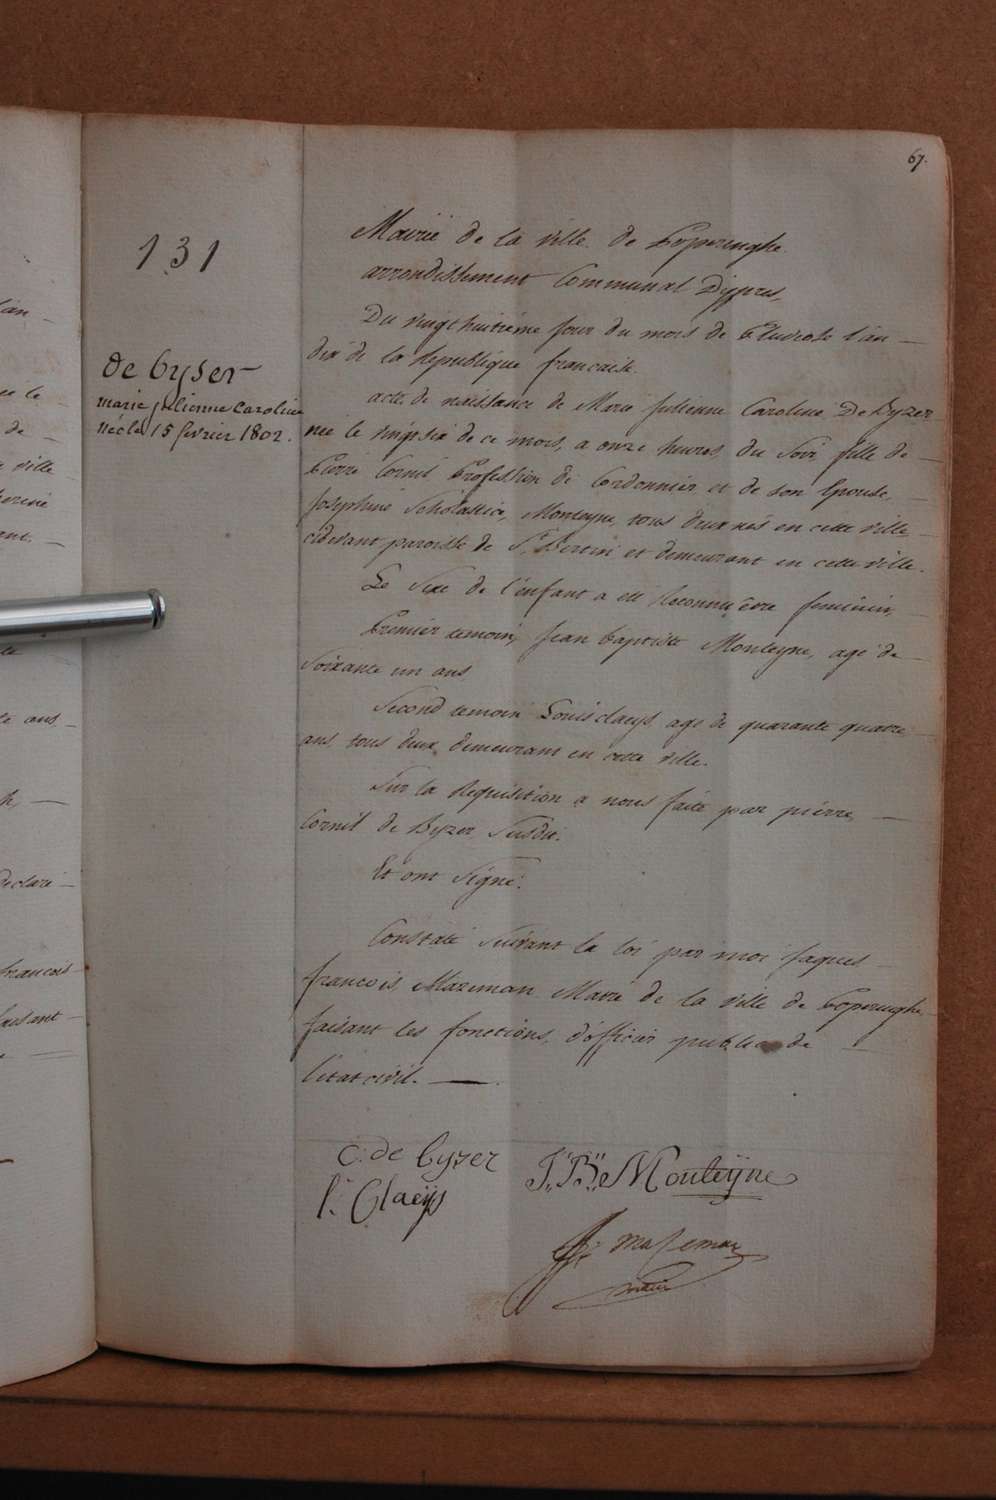 67.
131
de byser
marie julienne caroline
née le 15 février 1802.
Mairië de la ville de Poperinghe
arrondissement Communal D'ypres,
Du vingt huitième jour du mois de Pluviose l'an —
dix de la Republique francaise.
acte de naissance de Marie Julienne Caroline De Byzer
née le vingt six de ce mois, a onze heures, du Soir fille de —
Pierre Cornil Profession de Cordonnier et de son Epouse, —
Josephine Scholastice, Monteyne, tous deux nés en cette ville —
cidevant paroisse de St. Bertin et demeurant en cette ville.
Le Sexe de l'enfant a été Reconnu être feminin,
Premier temoin, Jean baptiste Monteyne, agé de —
Soixante un ans
Second temoin Louis claeys, agé de quarante quatre —
ans, tous deux demeurant en cette ville.
Sur la Requisition a nous faite par pierre, —
Cornil de Byzer, Susdit.
Et ont Signé.
Constaté Suivant la loi par moi Jaques —
francois Mazeman Maire de la ville de Poperinghe, —
faisant les fonctions, d'officier public de —
l'état civil. —
C: de byser J: B: Monteÿne
l: Claeÿs
mazeman
maire
l'an —
de —
ville
ans —
déclaré —
francois —
faisant —